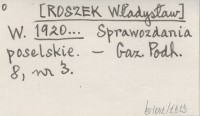 [ROSZEK Władysław]
W. 1920... Sprawozdania
poselskie. — Gaz. Podh.
8, nr 3.